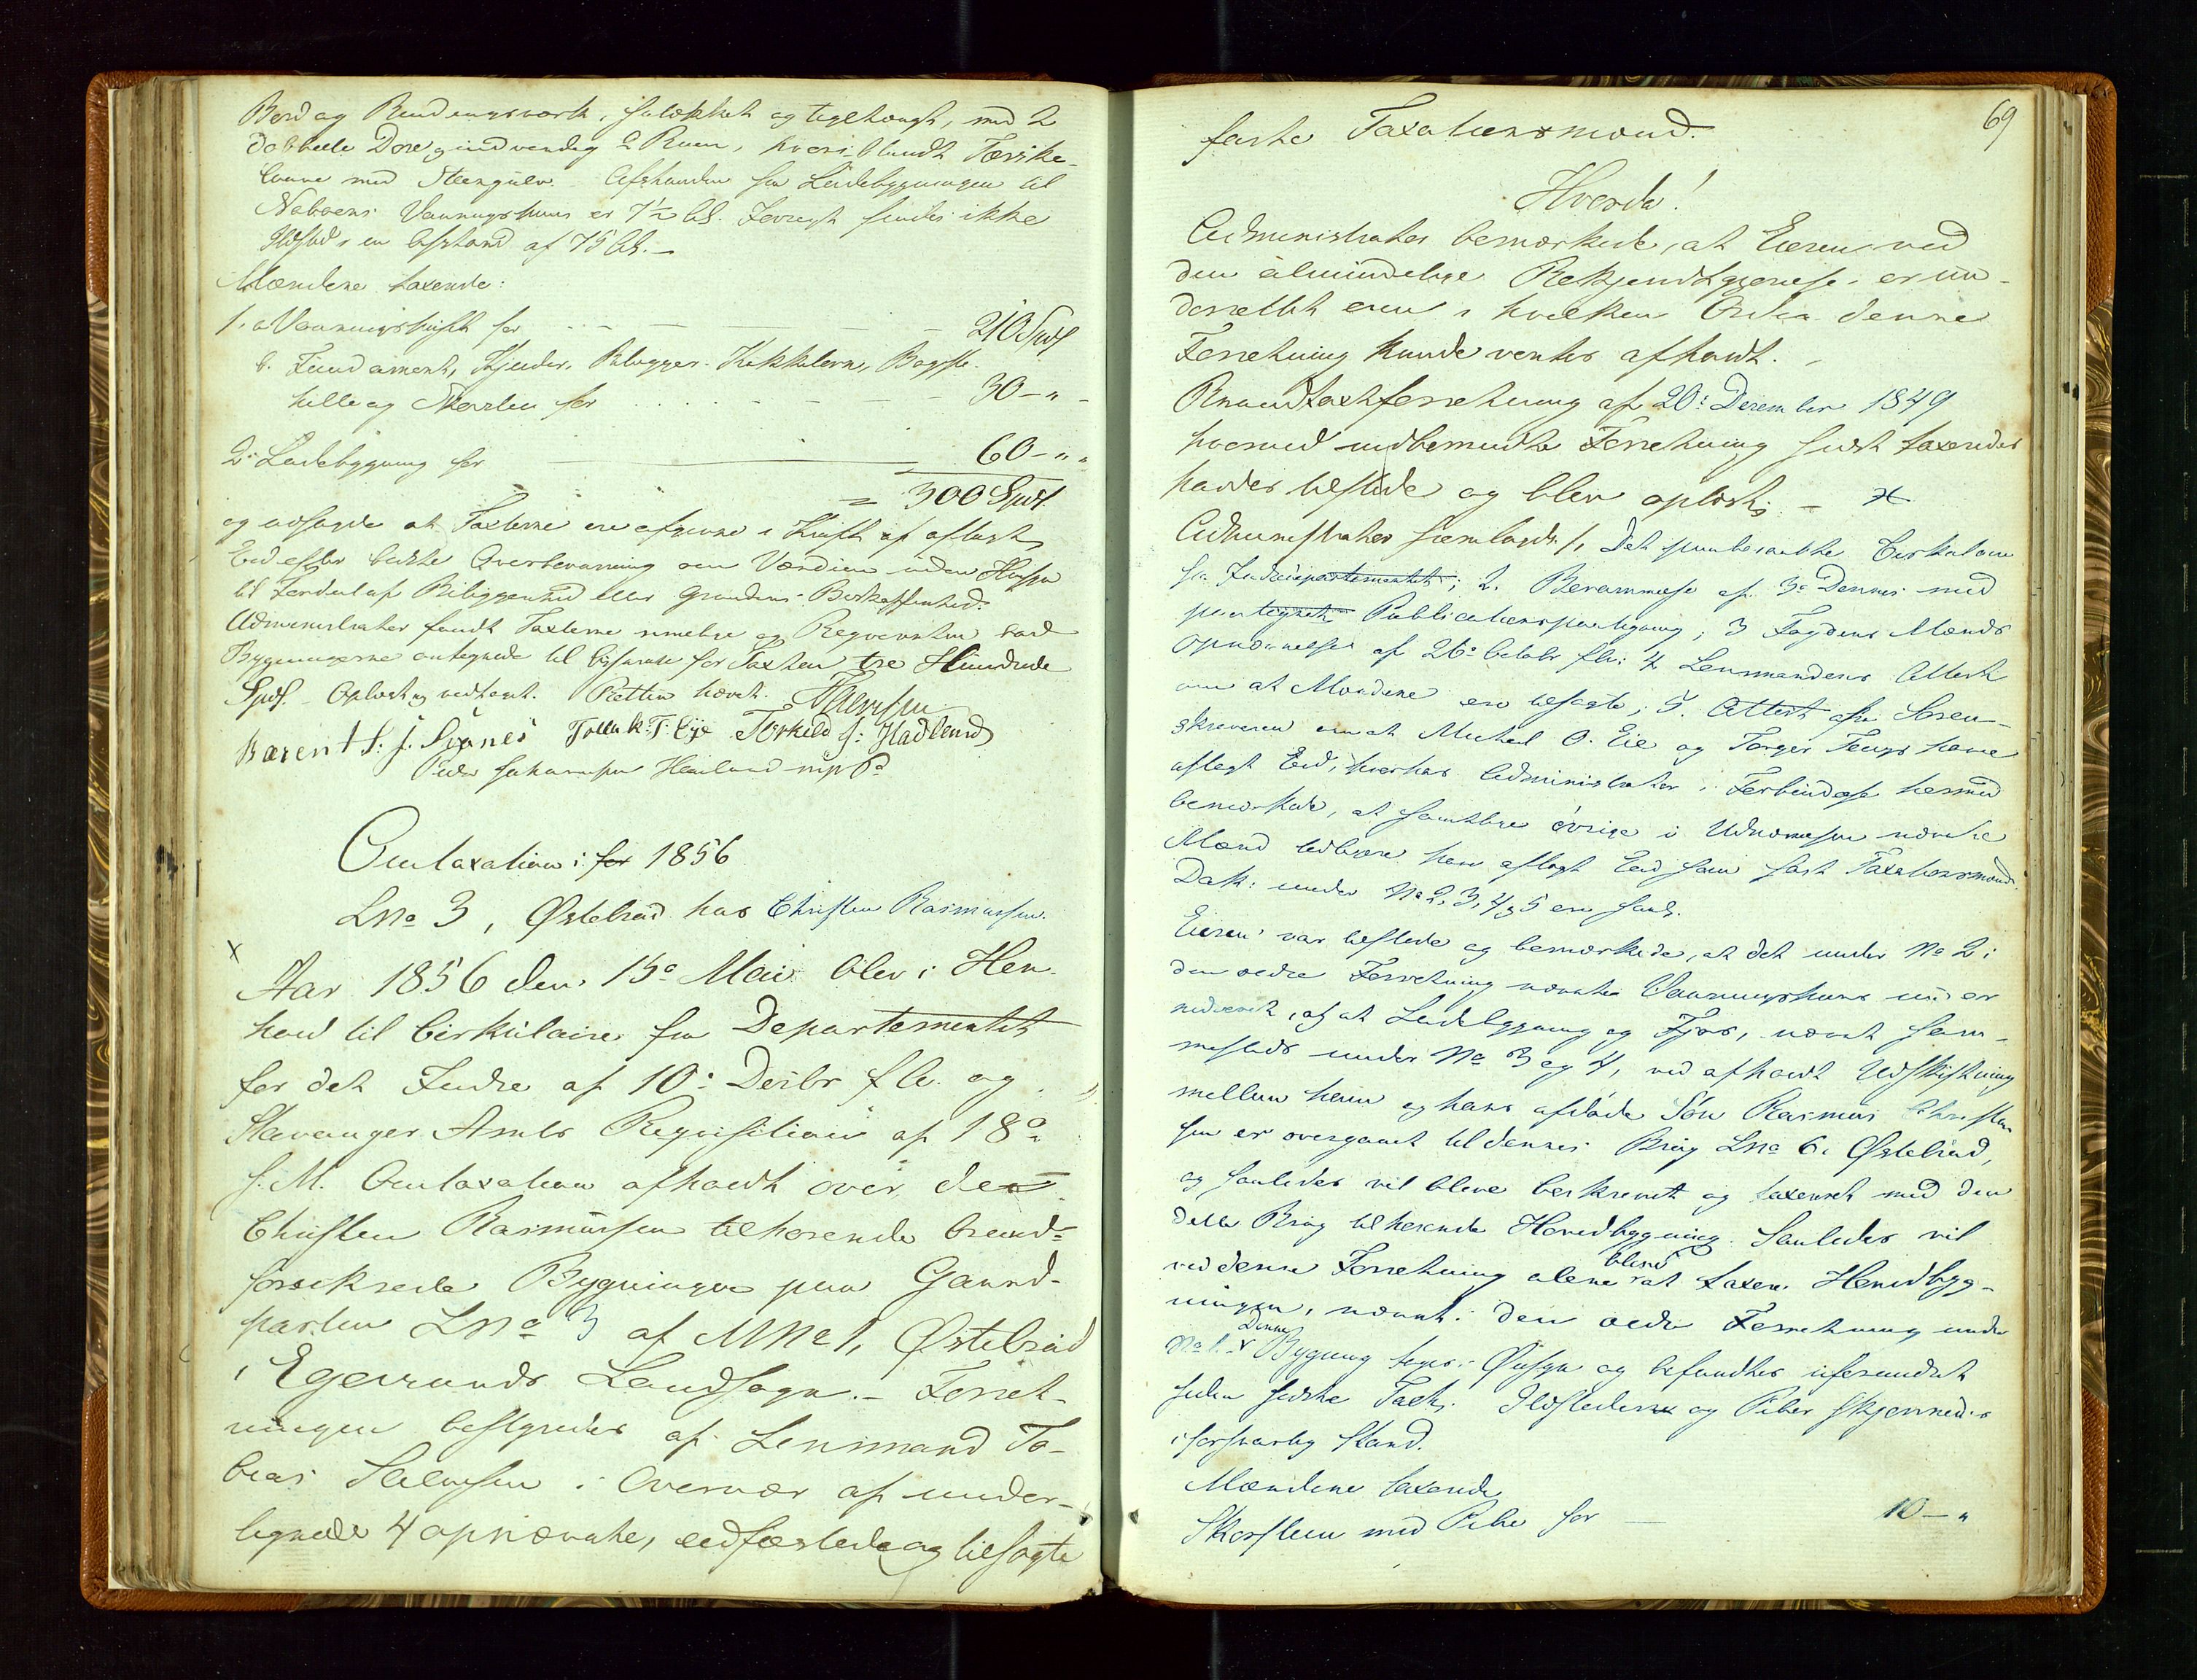 Bord og Bindingsværk, panelet og tegltængt, med 2
dobbelte Døre, indvendig 2 Rum, hvoriblandt Tærske-
laave med Steengulv. Afstanden fra Ladebygningen til
Naboens Vaaningshuus er 7½ Al. Forøvrigt findes ikke
Ildsted i en Afstand af 75 Al. –
Mændene taxerede:
1, a Vaaningshuset for – – – 210 Spdl
b. Fundament, Kjelder, Bilægger-Kakkelovn, Bagste-
helle og Skorsten for – – – 30 – „ –
2. Ladebygning for – 60 – „ „
= 300 Spdl.
og udsagde at Taxterne ere afgivne i Kraft af aflagt
Eed efter bedste Overbevisning om Værdien uden Hensyn
til Fordeel af Beliggenhed eller Grundens Beskaffenhed.
Administrator fandt Taxterne rimelige og Reqvirenten bad
Bygningerne antegnede til Assurance for Taxten tre Hundrede
Spdl. Oplæst og vedtaget. Retten hævet. TSalvesen
Barent S: J. Svanes Tollak T: Eje Torkild J: Hadland
Peder Johannesen Hæuland mpP
Omtaxation i for 1856
LNo 3, Østebrød hos Christen Rasmussen.
x
Aar 1856 den 15de Mai blev i Hen-
hold til Cirkulaire fra Departementet
for det Indre af 10de Decbr f.A. og
Stavanger Amts Reqvisition af 18de
f.M. Omtaxation afholdt over de
Christen Rasmussen tilhørende brand-
forsikrede Bygninger paa Gaard-
parten LNo 3 af MNo 1, Østebrød
i Egersunds Landsogn. – Forret-
ningen bestyredes af Lensmand To-
bias Salvesen i Overvær af under-
tegnede 4 opnævnte, eedfæstede og tilsagte
69
faste Taxationsmænd.
Hvorda!
Administrator bemærkede, at Eieren ved
den almindelige Bekjendtgjørelse er un-
derrettet om i hvilken Orden denne
Forretning kunde ventes afholdt. –
Brandtaxtforretning af 20de December 1849
hvorved indbemeldte Forretning sidst taxeredes
havdes tilstede og blev oplæst; – x
Administrator fremlagde 1, Det paaberaabte Cirkulaire
fra Indredepartementet; 2. Berammelse af 3de Dennes med
paategnet Publicationspaategning; 3 Fogdens Mænds
Opnævnelse af 26de Octobr f.A.; 4 Lensmandens Attest
om at Mændene ere tilsagte; 5. Attest fra Soren-
skriveren om at Michel O. Eie og Torger Tengs have
aflagt Eed, hvorhos Administrator i Forbindelse hermed
bemærkede, at samtlige øvrige i Udnævnelsen nævnte
Mænd tidligere have aflagt Eed som fast Taxationsmænd.
Dok: under No 2, 3, 4 og 5 ere sande.
Eieren var tilstede og bemærkede, at det under No 2 i
den ældre Forretning nævnte Vaaningshuus nu er
nedrevet, og at Ladebygning og Fjøs, nævnt sam-
mesteds under No 3 og 4, ved afholdt Udskiftning
mellem ham og hans afdøde Søn Rasmus Christen-
sen er overgaaet til dennes Brug LNo 6. Østebrød,
og saaledes vil blive beskrevet og taxeret med den
dette Brug tilhørende Hovedbygning. Saaledes vil
ved denne Forretning alene blive at taxere Hovedbyg-
ningen, nævnt i den ældre Forretning under
No 1. x Denne Bygning toges i Øiesyn og befandtes uforandret
siden sidste Taxt. Ildstederne og Piber skjønnedes
i forsvarlig Stand.
Mændene taxerede
Skorsteen med Pibe for – 10 – „